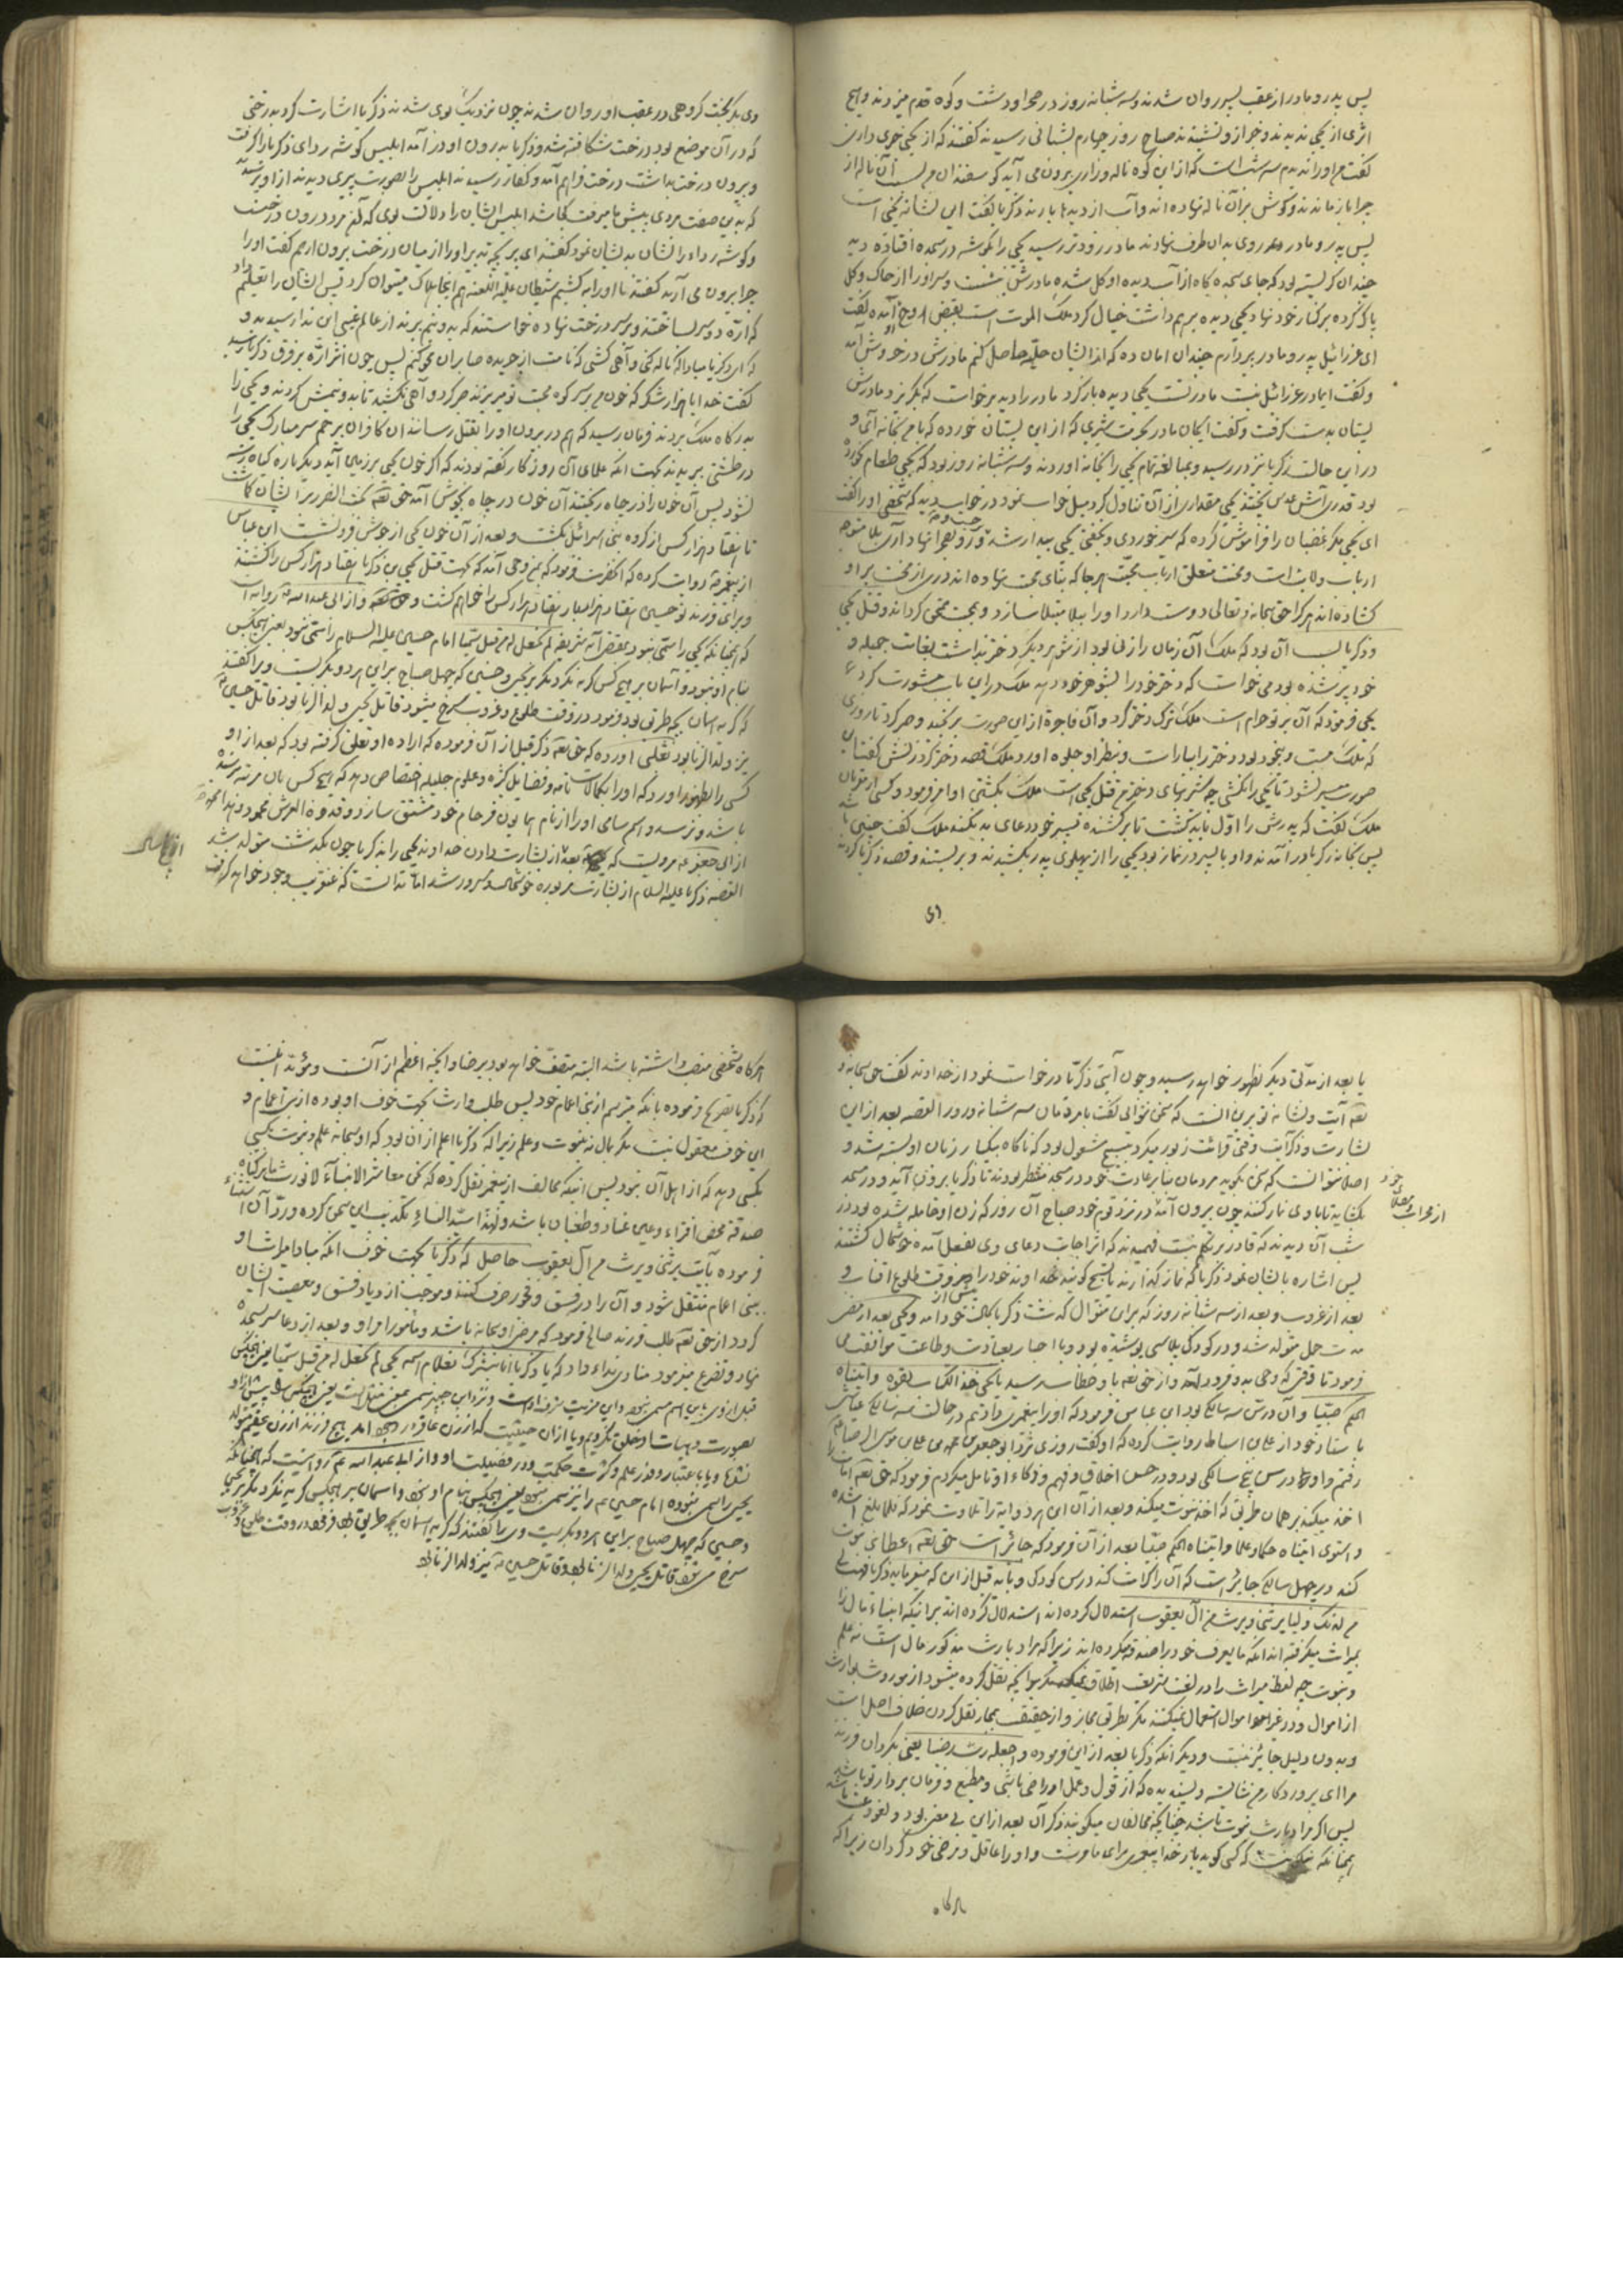 پس پدر و مادر از عقب پسر روان شدند و سه شبانه روز در صحرا و دشت و کوه قدم میزدند و هیچ
اثری از یحیی ندیدند و خبر او نشنیدند صباح روز چهارم بشبانی رسیدند گفتند که از یحیی خبری داری
گفت من او را ندیدم سه شب است که از این کوه ناله و زاری بیرون می آید گوسفندان من بسبب آن ناله از
چرا باز ماندند و گوش بر آن ناله نهاده اند و آب از دیدها بارند زکریا گفت این نشانه یحیی است
پس پدر و مادر روی بدان طرف نهادند مادر زودتر رسید یحیی را بگوشه در سجده افتاده دید
چندان گریسته بود که جای سجده گاه از آب دیده او گل شده مادرش بنشست و سر او را از خاک و گل
پاک کرده بر کنار خود نهاد یحیی دیده بر هم داشت خیال کرد ملک الموت است بقبض روح آمده گفت
ای عزرائیل پدر و مادر پیر دارم چندان امان ده که از ایشان حلیت حاصل کنم مادرش در خروش آمد
و گفت ای مادر عزرائیل نیست مادر تست یحیی دیده باز کرد مادر را دید برخواست که بگریزد مادرش
پستان بدست گرفت و گفت ای جان مادر بحرمت شیری که از این پستان خورده که با من بخانه آی و
در این حالت زکریا نیز در رسید و بمبالغه تمام یحیی را بخانه آوردند و سه شبانه روز بود که یحیی طعام نخورده
بود قدری آش عدس پختند یحیی مقداری از آن تناول کرد میل خواب نمود در خواب دید که شخصی او را گفت
ای یحیی مگر غضبان را فراموش کرده که سیر خوردی و بخفتی یحیی بیدار شد و رو بصحرا نهاد آری بلا متوجه
ارباب ولایت است و محنت متعلق ارباب محبت هر جا که بنای محبت نهاده اند دری از محنت بر او
گشاده اند هر کرا حق سبحانه و تعالی دوست دارد او را ببلا مبتلا سازد و بمحنت ممتحن گرداند و قتل یحیی
و زکریا بسبب آن بود که ملک آن زمان را زنی بود از شوهر دیگر دختر داشت بغایت جمیله و
خود پیر شده بود می خواست که دختر خود را بشوهر خود دهد ملک در این باب مشورت کرد
یحیی فرمود که آن بر تو حرام است ملک ترک دختر کرد و آن فاجره از این صورت برنجید و صبر کرد تا روزی
که ملک مست و بیخود بود دختر را بیاراست و بنظر او جلوه آورد ملک قصد دختر کرد زنش گفتا این
صورت میسر نشود تا یحیی را نکشی چه شیربهای دختر من قتل یحیی است ملک بکشتن او امر فرمود
ملک گفت که پدرش را اول باید کشت تا بر کشنده پسر خود دعای بد نکند ملک گفت چنین باشد
پس بخانه زکریا در آمدند و او با پسر در نماز بود یحیی را از پهلوی پدر بکشیدند و بر بستند و قصد زکریا کردند
وی
وی بگریخت گروهی در عقب او روان شدند چون نزدیک بوی شدند زکریا اشارت کرد بدرختی
که در آن موضع بود درخت شکافته شد و زکریا بدرون او در آمد ابلیس گوشه ردای زکریا را گرفت
و بیرون درخت بداشت درخت فراهم آمد و کفار رسیدند ابلیس را بصورت پیری دیدند از او پرسیدند
که بدین صفت مردی پیش ما میرفت کجا شد ابلیس ایشان را دلالت نمود که آن مرد درون درخت است
و گوشه رداء را نشان بدیشان نمود گفتند ای پیر چه تدبیر او را از میان درخت بیرون آریم گفت او را
چرا بیرون می آرید گفتند تا او را بکشیم شیطان علیه اللعنه هم اینجا هلاک میتوان کرد پس ایشان را تعلیم داد
که ارّه دو سر ساختند و بر سر درخت نهاده خواستند که بدو نیم برند از عالم غیبی این ندا رسید
که ای زکریا مبادا که ناله کنی و آهی کشی که نامت از جریده صابران محو کنم پس چون اثر ارّه بر فرق زکریا رسید
گفت خدایا هزار شکر که خون من بر سر کوه محبت تو میریزند صبر کرد و آهی نکشید تا بدو نیمش کردند و یحیی را
بدرگاه ملک بردند فرمان رسید که هم در بیرون او را بقتل رسانند آن کافران بیرحم سر مبارک یحیی را
در طشتی ببریدند بجهت آنکه علمای آن روزگار گفته بودند که اگر خون یحیی بر زمین آید دیگر باره گیاه سبز
نشود پس آن خون را در چاه ریختند آن خون در چاه بجوش آمد حق تعالی بخت النصر را بر ایشان گماشت
تا هفتاد هزار کس از گروه بنی اسرائیل بکشت و بعد از آن خون یحیی از جوش فرو نشست ابن عباس
از پیغمبر روایت کرده که آنحضرت فرمود که بمن وحی آمد که بجهت قتل یحیی بن زکریا هفتاد هزار کس را کشتند
و برای فرزند تو حسین هفتاد هزار بار هفتاد هزار کس را خواهم کشت و از ابی عبد الله روایت است
که همچنانکه یحیی را سمّی نبود بمقتضی آیه شریفه لم نجعل له من قبل سمیا امام حسین علیه السلام را سمّی نبود یعنی هیچکس
بنام او نبود و آسمان بر هیچ کس گریه نکرد مگر بر یحیی و حسین که چهل صباح برای هر دو بگریست ویرا گفتند
که گریه آسمان بچه طریق بود فرمود در وقت طلوع و غروب سرخ میشود قاتل یحیی ولد الزنا بود قاتل حسین
نیز ولد الزنا بود ثعلبی آورده که حق تعالی ذکر قبل از آن فرموده که اراده او تعلق گرفته بود که بعد از او
کسی را بظهور آورد که او را بکمالات تامه و فضایل کثیره و علوم جلیله اختصاص دهد که هیچ کس بان مرتبه نرسیده
باشد و نرسد و اسم سامی او را از نام همایون فرجام خود مشتق سازد
از ابی جعفر مرویست که بعد از بشارت دادن خداوند یحیی را بزکریا چون یکد نشت متولد شد
القصه زکریا علیه السلام از بشارت مزبوره خوشحال و مسرور شد اما ندانست که عنقریب بوجود خواهد گرفت
یا بعد از مدتی دیگر بظهور خواهد رسید و چون آیتی زکریا درخواست نمود از خداوند گفت حق سبحانه و
تعالی آیت و نشانه تو برین است که سخن نتوانی گفت با مردمان سه شبانه روز القصه بعد از این
بشارت و ذکر آیات وقتی قرائت زبور میکرد و تسبیح مشغول بود که ناگاه بیکبار زبان او بسته شد و
اصلا نتوانست که سخن بگوید مردمان بنا بر عادت خود در مسجد منتظر بودند تا زکریا بیرون آید و در مسجد
بگشاید تا با وی نماز کنند چون بیرون آمد نزد قوم خود صباح آن روز که زن او حامله شده بود در
شب آن دیدند که قادر بر تکلم نیست فهمیدند که اثر اجابت دعای وی بفعل آمده خوشحال گشتند
پس اشاره بایشان نمود زکریا که نماز بگذارند یا تسبیح گویند خداوند خود را پیش از وقت طلوع آفتاب و
بعد از غروب و بعد از سه شبانه روز که برین منوال گذشت زکریا بحالت خود آمد و یحیی بعد از مضی
مدت حمل متولد شد و در کودکی پلاسی پوشیده بود و با احبار بعبادت و طاعت موافقت می
فرمود تا وقتی که وحی بدو فرود آمد و از حق تعالی باو خطاب رسید یا یحیی خذ الکتاب بقوة و آتیناه
الحکم صبیا و آن در سن سه سالگی بود ابن عباس فرمود که او را پیغمبری دادیم در حالت سه سالگی عیاشی
باسناد خود از علی بن اسباط روایت کرده که او گفت روزی نزد ابو جعفر محمد بن علی بن موسی الرضا
رفتم و او در سن پنج سالگی بود و در حسن اخلاق و فهم و ذکاء او تامل میکردم فرمود که حق تعالی
اخذ میکند بر همان طریق که اخذ نبوت میکند و بعد از آن این هر دو آیه را تلاوت نمود که فلما بلغ اشده
و استوی آتیناه حکما و علما و آتیناه الحکم صبیا بعد از آن فرمود که جائز است حق تعالی اعطای نبوت
کند در چهل سالگی جایز است که آن را کرامت کند در سن کودکی و بآیه قبل از این که میفرماید زکریا فهب لی
من لدنک ولیا یرثنی و یرث من آل یعقوب استدلال کرده اند برانیکه انبیاء مال را
بمیراث میگرفته اند زیرا که مراد بارث مذکور مال است نه علم
و نبوت چه لفظ میراث را در لغت شریف اطلاق نمیکنند مگر بر آنچه نقل کرده میشود از مورث بوارث
از اموال و در غیر اموال استعمال نمیکنند مگر بطریق مجاز و از حقیقت بمجاز نقل کردن خلاف اصل است
و بدون دلیل جائز نیست و دیگر آنکه زکریا بعد از این فرموده و اجعله رب رضیا یعنی بگردان فرزند
مرا ای پروردگار من شایسته و پسندیده که از قول و عمل او راضی باشی و مطیع و فرمان بردار تو باشد
پس اگر مراد بارث نبوت باشد چنانچه مخالفان میگویند ذکر آن بعد از این بی معنی بود و لغو
همچنانکه که کسی گوید بار خدا پیغمبری برای ما فرست و او را عاقل و مرضی خود گردان زیرا که
هرگاه
هرگاه شخصی منصب داشته باشد البته متصف خواهد بود برضا و آنچه اعظم از آنست و مؤید اینست
که زکریا تصریح فرموده بانکه میترسم از بنی اعمام خود پس طلب وارث بجهت خوف او بوده از بنی اعمام و
این خوف معقول نیست مگر بمال نه بنبوت و علم زیرا که زکریا اعلم از آن بود که او سبحانه علم و نبوت بکسی
بکسی دهد که از اهل آن نبود پس آنچه مخالف از پیغمبر نقل کرده که نحن معاشر الانبیاء لا نورث ما ترکناه
صدقة محض افتراء و عین عناد و طغیان باشد و لهذا سیّد النساء تکذیب این سخن کرده و ردّ آن
فرموده بآیت یرثنی و یرث من آل یعقوب حاصل که زکریا بجهت خوف آنکه مبادا میراث او
ببنی اعمام منتقل شود و آن را در فسق و فجور صرف کنند و موجب ازدیاد فسق و معصیت ایشان
گردد از حق تعالی طلب فرزند صالح فرمود که مرضی او سبحانه باشد و بعد از دعا سر بسجده
نهاد و تضرع مینمود منادی نداء داد که یا زکریا انا نبشرک بغلام اسمه یحیی لم نجعل له من قبل سمیا یعنی هیچکس
قبل از وی باین اسم مسمی نبود و این مزیت شرف اوست
بصورت و هیات او خلق نکردیم و یا از آن حیثیت که از زن عاقر هیچ فرزند از زن عقیم متولد
نشد و یا باعتبار وفور علم و کثرت حکمت و در فضیلت او و از ابی عبد الله روایست که همچنانکه
یحیی را سمی نبوده امام حسین را نیز سمی نبود یعنی هیچکس بنام او نبود و آسمان بر هیچکس گریه نکرد مگر بر یحیی
و حسین که چهل صباح برای هر دو بگریست وی را گفتند که گریه آسمان بچه طریق بود فرمود در وقت طلوع و غروب
سرخ می شود قاتل یحیی ولد الزنا بود و قاتل حسین نیز ولد الزنا بود